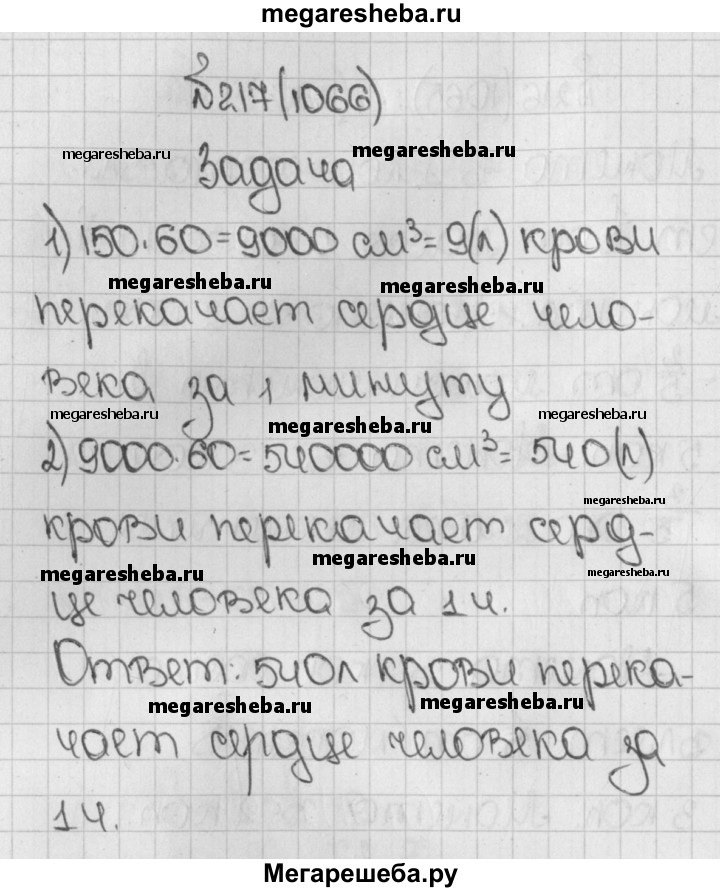 megaresheba.ru
№217(1066)
megaresheba.ru
megaresheba.ru
Задача
1) 150·60=9000 см³=9(л) крови
megaresheba.ru
megaresheba.ru
перекачает сердце чело-
века за 1 минуту
megaresheba.ru
megaresheba.ru
megaresheba.ru
2) 9000·60=540000 см³=540(л)
megaresheba.ru
крови перекачает серд-
megaresheba.ru
megaresheba.ru
megaresheba.ru
це человека за 1 ч.
Ответ: 540л крови перека-
megaresheba.ru
megaresheba.ru
чает сердце человека за
1 ч.
Мегарешеба.ру